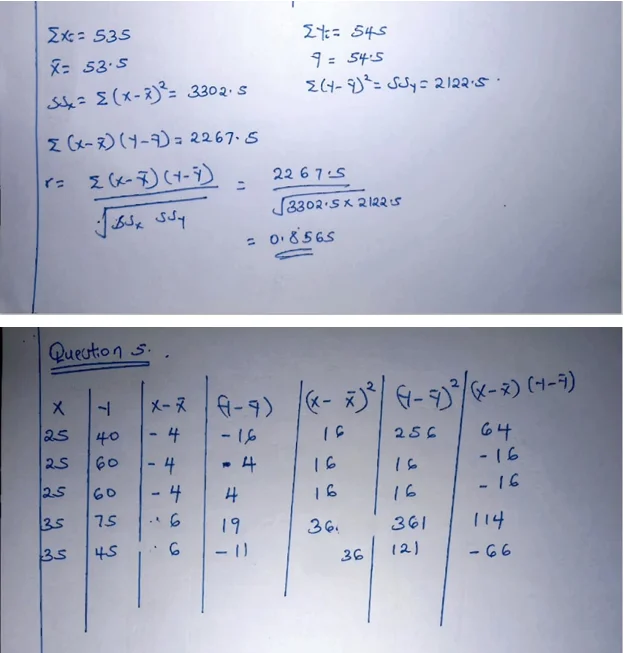 Σxi = 535 Σyi = 545
x̄ = 53.5 ȳ = 54.5
SSx = Σ(x-x̄)² = 3302.5 Σ(y-ȳ)² = SSy = 2122.5
Σ(x-x̄)(y-ȳ) = 2267.5
r = Σ(x-x̄)(y-ȳ) / √SSx SSy = 2267.5 / √3302.5 x 2122.5
= 0.8565
Question 5.
x y x-x̄ (y-ȳ) (x-x̄)² (y-ȳ)² (x-x̄)(y-ȳ)
25 40 -4 -16 16 256 64
25 60 -4 4 16 16 -16
25 60 -4 4 16 16 -16
35 75 6 19 36 361 114
35 45 6 -11 36 121 -66